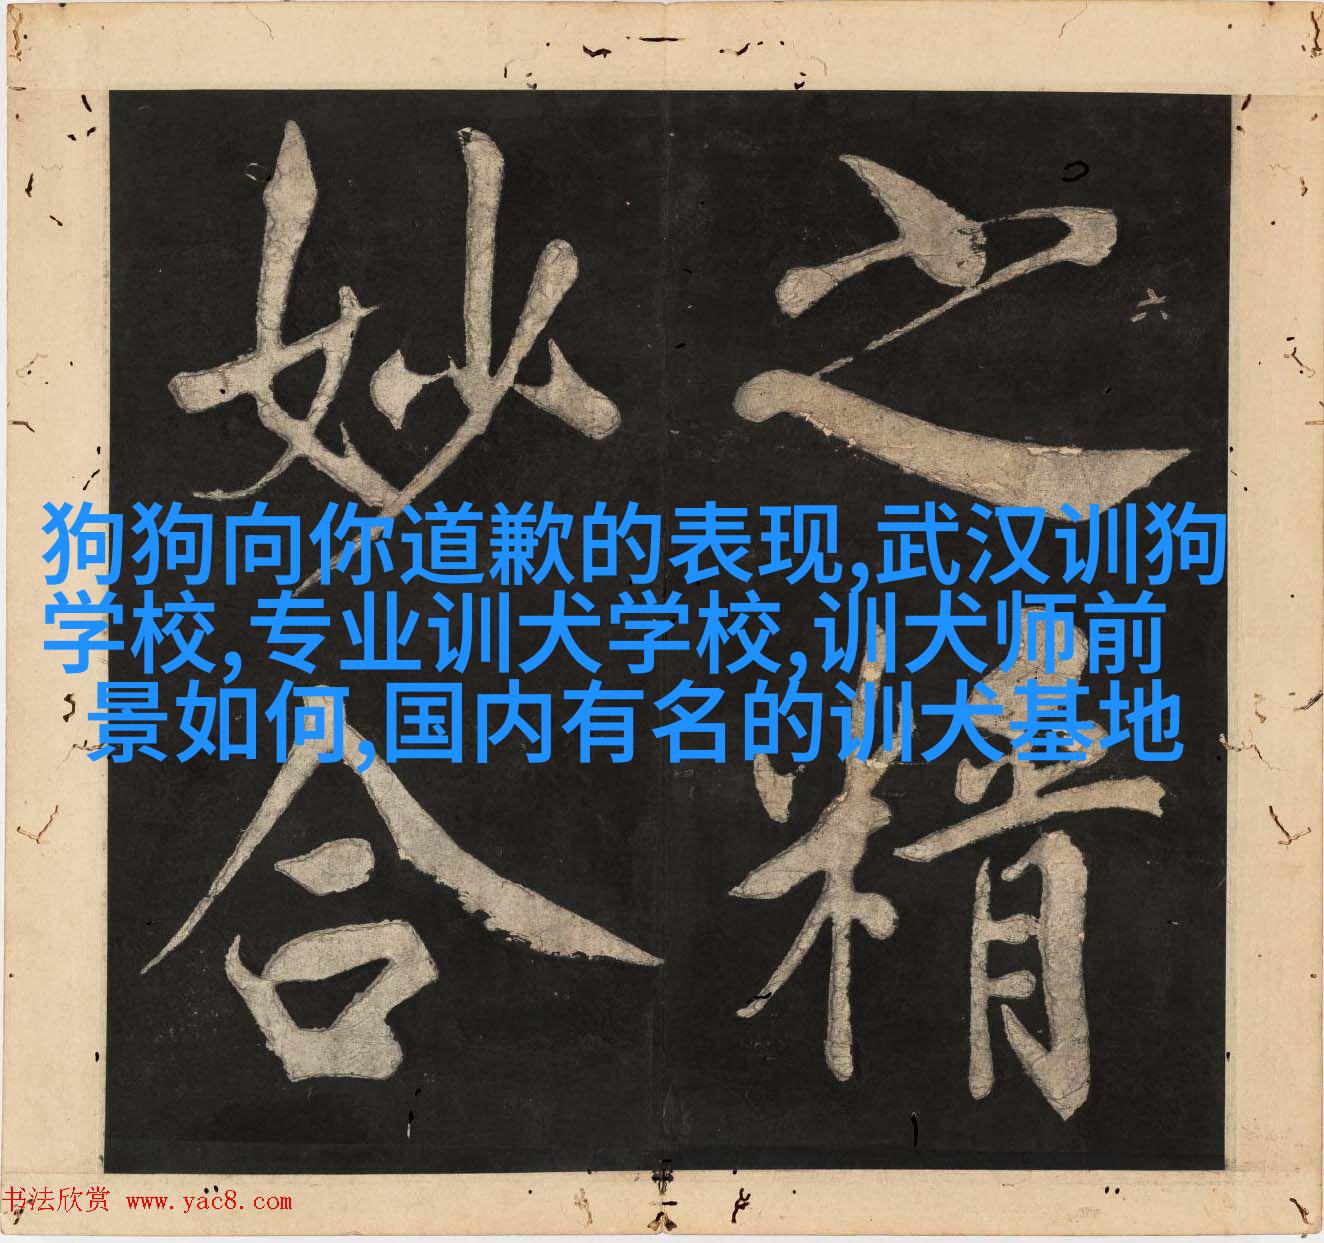 之精
妙合
六
狗狗向你道歉的表现,武汉训狗
学校,专业训犬学校,训犬师前
景如何,国内有名的训犬基地
书法欣赏 www.yac8.com